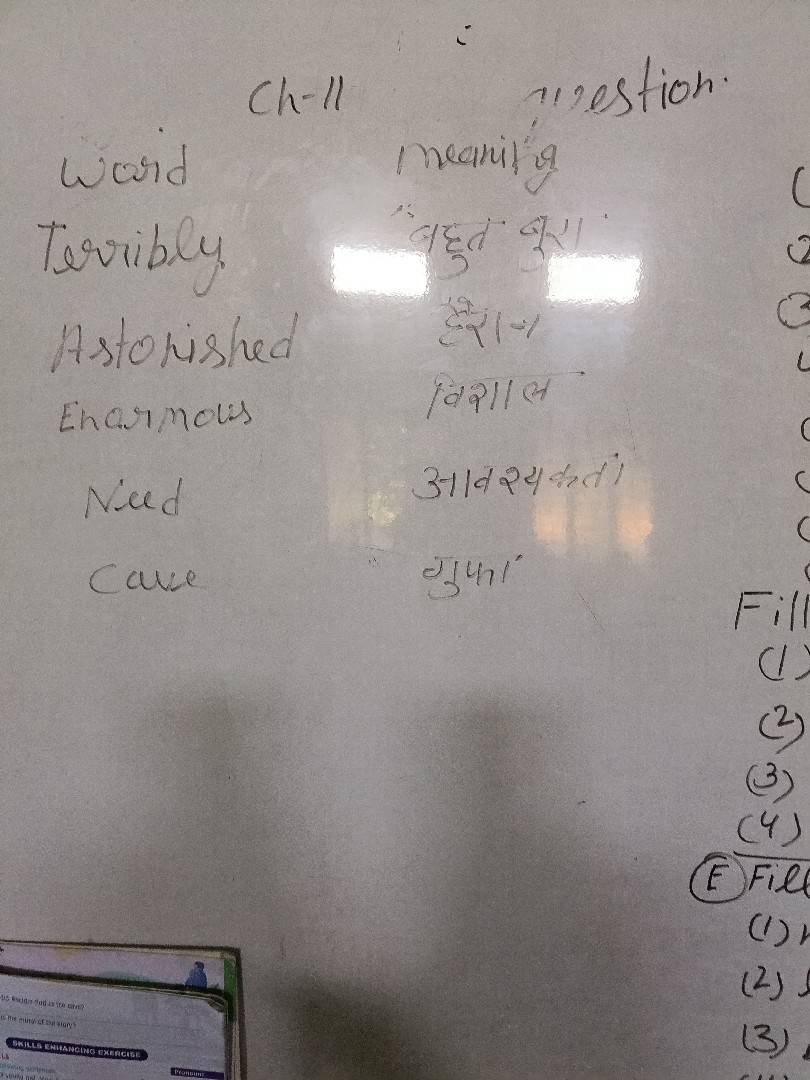 Ch-11 question.
Word meaning
Terribly बहुत बुरा
Astonished हैरान
Enarmous विशाल
Need आवश्यकता
Cave गुफा
Fill
(1)
(2)
(3)
(4)
(E) Fill
(1)
(2)
(3)
SKILLS ENHANCING EXERCISE
Pronouns